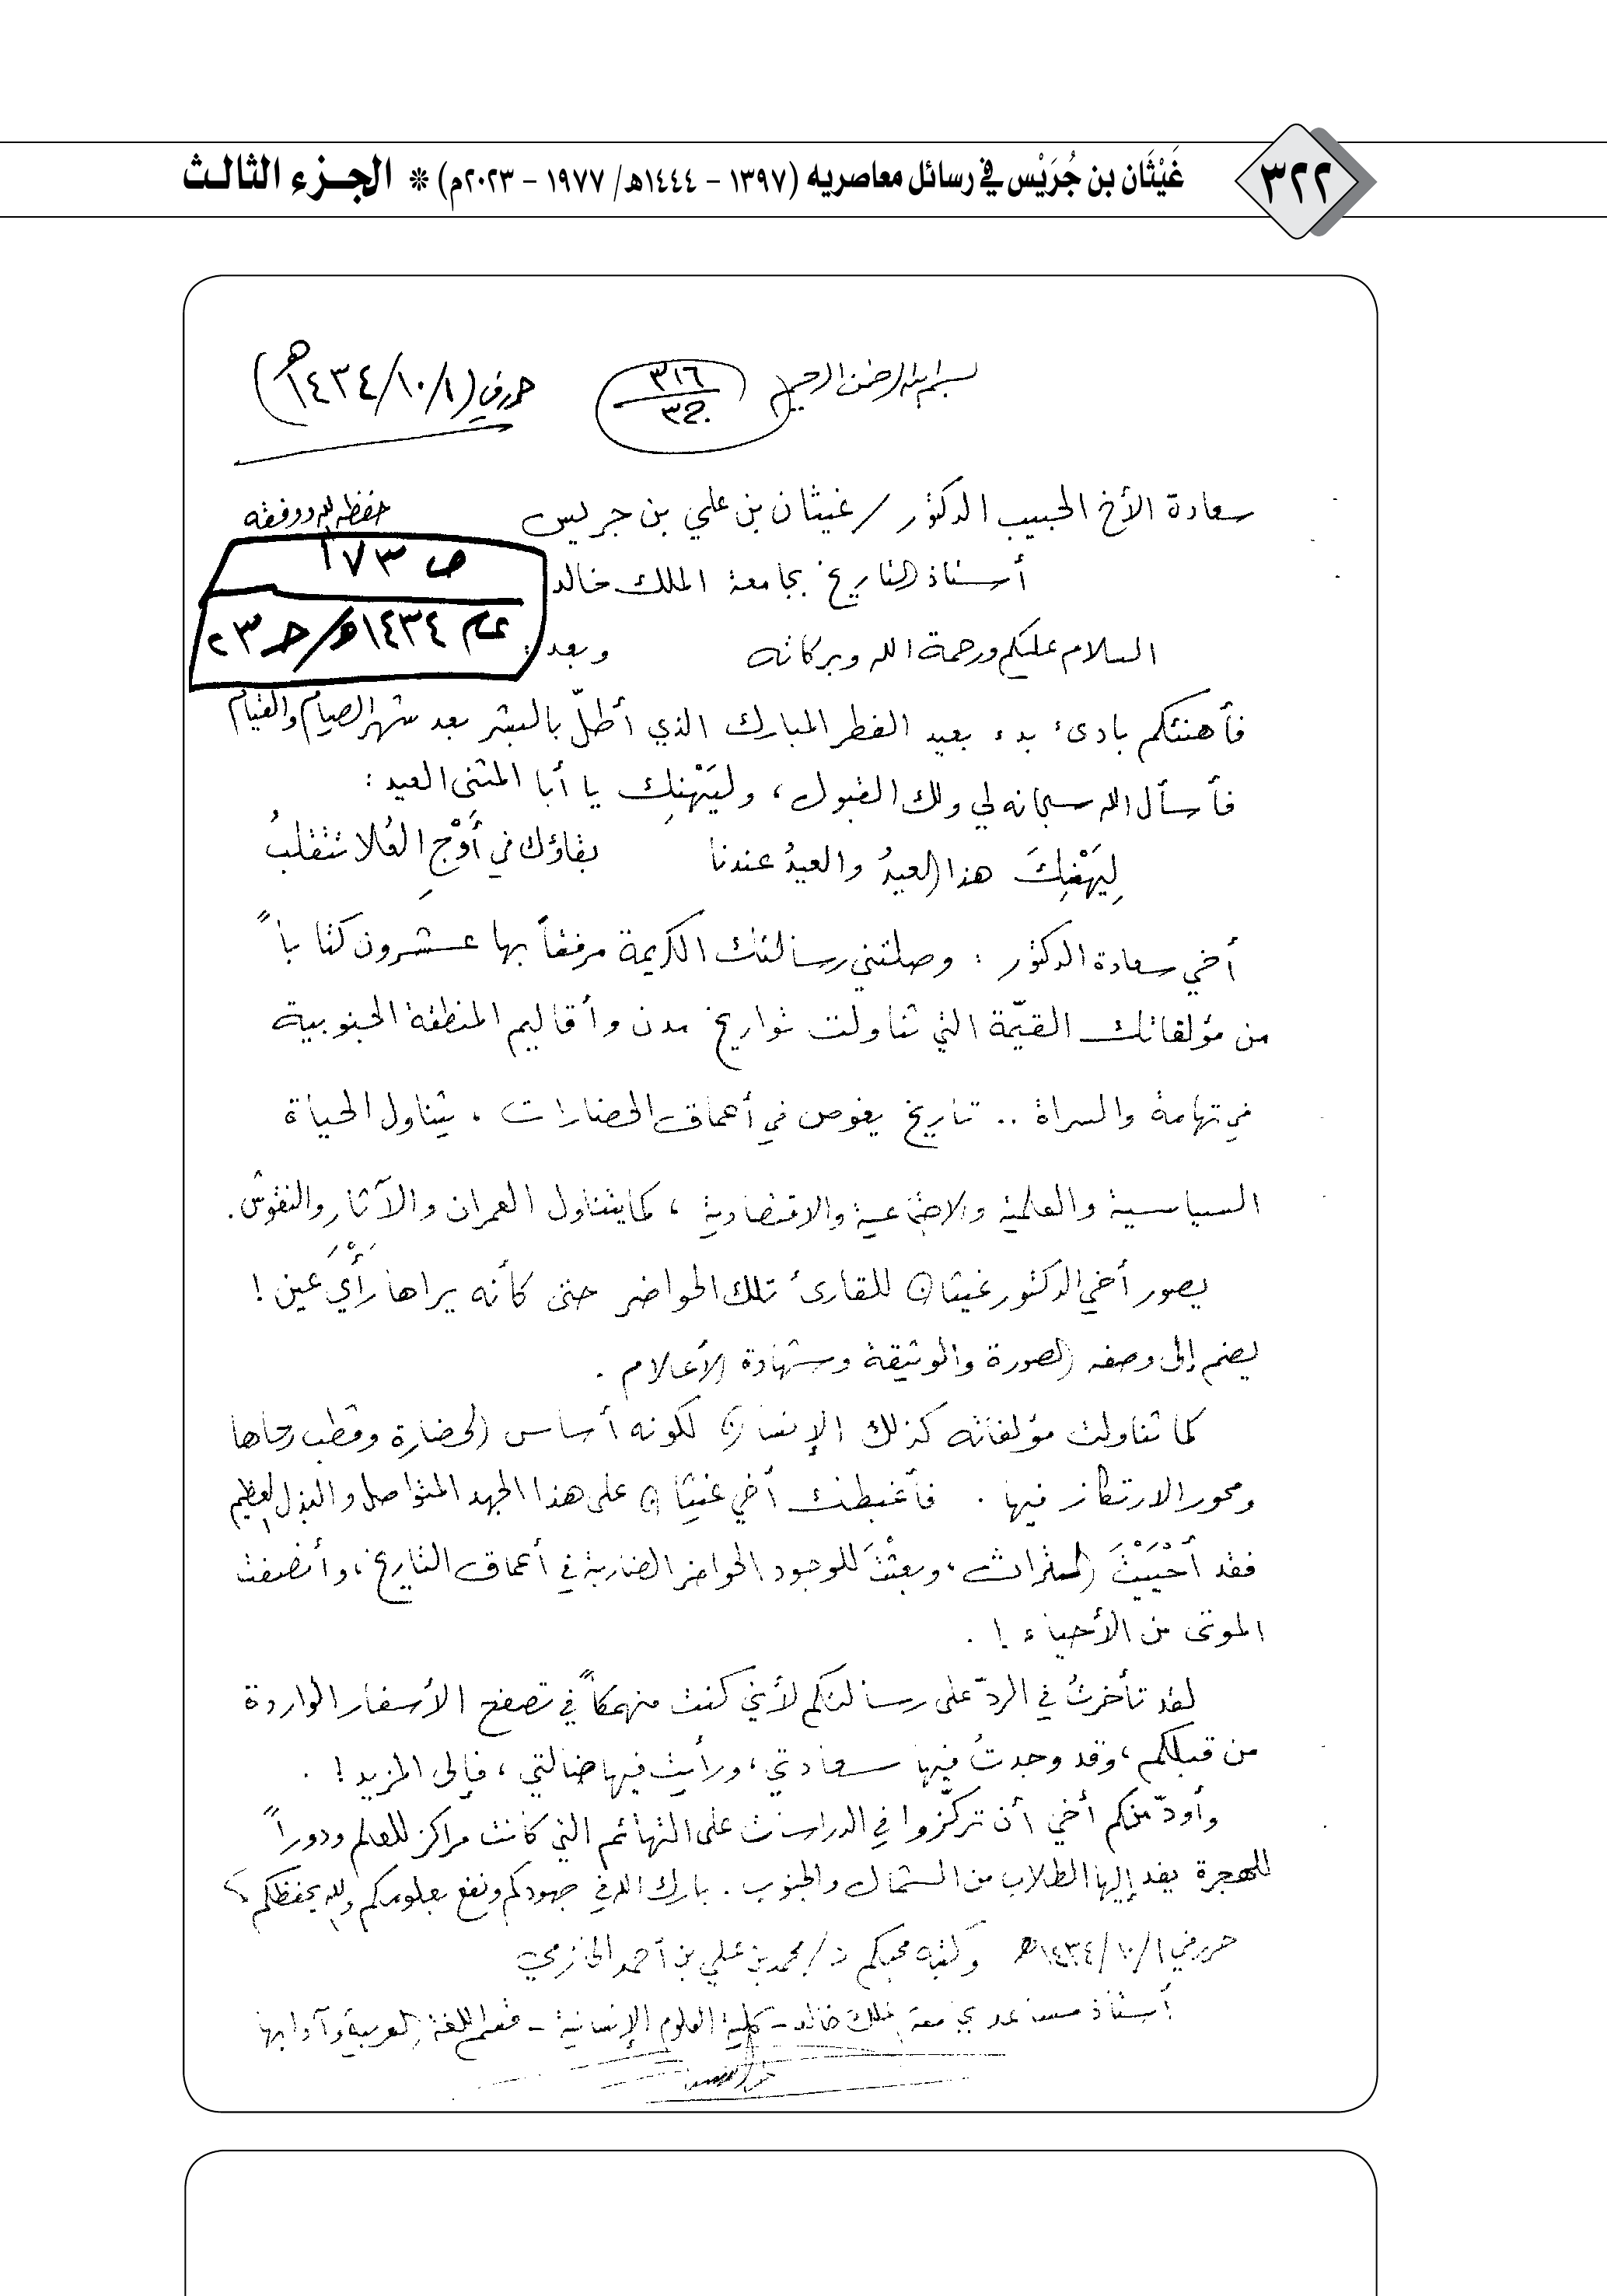 ٣٢٢
غَيْثَان بن جُرَيْس في رسائل معاصريه (١٣٩٧ - ١٤٤٤هـ/ ١٩٧٧ - ٢٠٢٣م) * الجـزء الثالـث
بسم الله الرحمن الرحيم
٣١٦
ج٣
حرر في (١٤٣٤/١٠/١هـ)
سعادة الأخ الحبيب الدكتور / غيثان بن علي بن جريس حفظه الله ووفقه
أستاذ التاريخ بجامعة الملك خالد
ص ١٧٣
عام ١٤٣٤هـ/ حـ ٢٣
السلام عليكم ورحمة الله وبركاته وبعد :
فأهنئكم بادئ بدء بعيد الفطر المبارك الذي أطلّ بالبشر بعد شهر الصيام والقيام
فأسأل الله سبحانه لي ولك القبول ، وليَهْنِك يا أبا المثنى العيد :
لِيَهْنِكَ هذا العيدُ والعيدُ عندنا بقاؤك في أَوْجِ العُلا تتقلبُ
أخي سعادة الدكتور : وصلتني رسالتك الكريمة مرفقاً بها عشرون كتاباً
من مؤلفاتك القيّمة التي تناولت تواريخ مدن وأقاليم المنطقة الجنوبية
في تهامة والسراة .. تاريخ يغوص في أعماق الحضارات ، يتناول الحياة
السياسية والعلمية والاجتماعية والاقتصادية ، كما يتناول العمران والآثار والنقوش .
يصور أخي الدكتور غيثان للقارئ تلك الحواضر حتى كأنه يراها رَأْيَ عين !
يضم إلى وصفه الصورة والوثيقة وشهادة الأعلام .
كما تناولت مؤلفاته كذلك الإنسان لكونه أساس الحضارة وقطب رحاها
ومحور الارتكاز فيها . فأغبطك أخي غيثان على هذا الجهد المتواصل والبذل العظيم
فقد أَحْيَيْتَ التراث ، وبعثْتَ للوجود الحواضر الضاربة في أعماق التاريخ ، وأنصفت
الموتى من الأحياء ! .
لقد تأخرتُ في الردّ على رسالتكم لأني كنت منهمكاً في تصفح الأسفار الواردة
من قبلكم ، وقد وجدتُ فيها سعادتي ، ورأيت فيها ضالتي ، فإلى المزيد ! .
وأودّ منكم أخي أن تركّزوا في الدراسات على التهائم التي كانت مراكز للعلم ودوراً
للهجرة يفد إليها الطلاب من الشمال والجنوب . بارك الله في جهودكم ونفع بعلومكم والله يحفظكم
حرر في ١٤٣٤/١٠/١هـ وكتبه محبكم د/ محمد بن علي بن أحمد الحازمي
أستاذ مساعد بجامعة الملك خالد - كلية العلوم الإنسانية - قسم اللغة العربية وآدابها